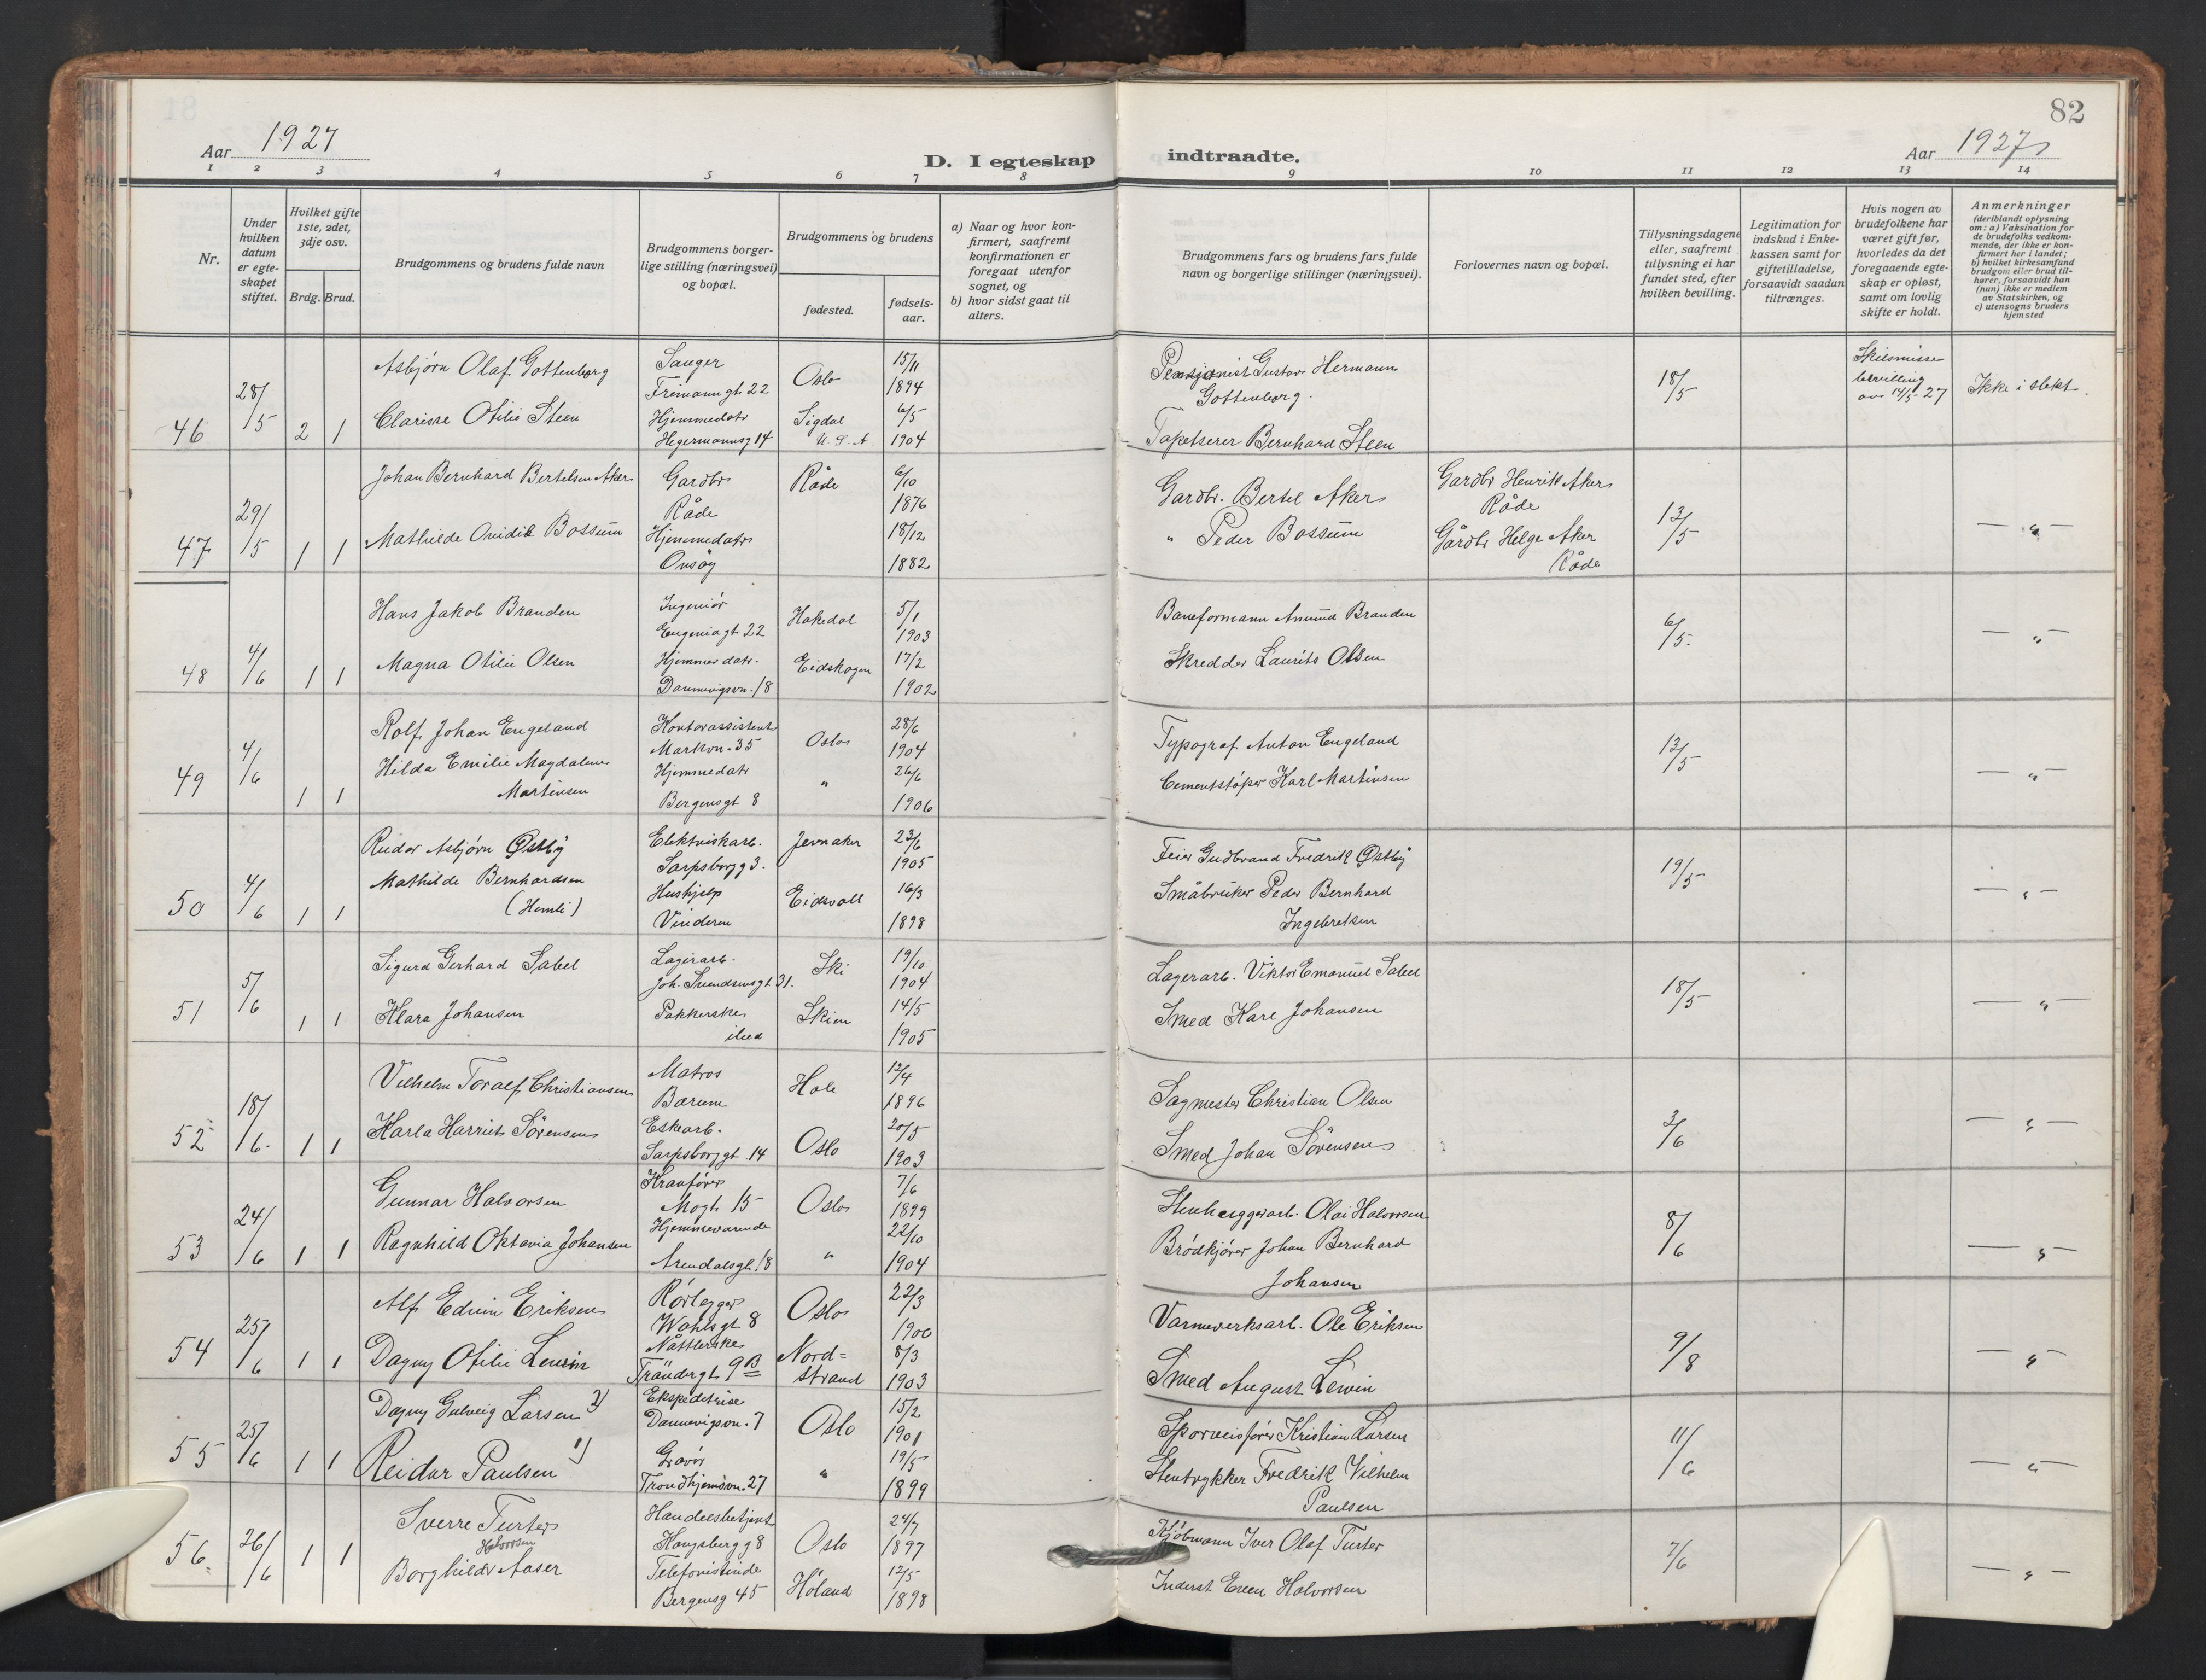 82
Aar 1927
D. I egteskap indtraadte.
Aar 1927
1 2 3 4 5 6 7 8 9 10 11 12 13 14
Nr.
Under hvilken datum er egteskapet stiftet.
Hvilket gifte 1ste, 2det, 3dje osv.
Brdg. Brud.
Brudgommens og brudens fulde navn
Brudgommens borgerlige stilling (næringsvei) og bopæl.
Brudgommens og brudens
fødested.
fødselsaar.
a) Naar og hvor konfirmert, saafremt konfirmationen er foregaat utenfor sognet, og
b) hvor sidst gaat til alters.
Brudgommens fars og brudens fars fulde navn og borgerlige stillinger (næringsvei).
Forlovernes navn og bopæl.
Tillysningsdagene eller, saafremt tillysning ei har fundet sted, efter hvilken bevilling.
Legitimation for indskud i Enkekassen samt for giftetilladelse, forsaavidt saadan tiltrænges.
Hvis nogen av brudefolkene har været gift før, hvorledes da det foregaaende egteskap er opløst, samt om lovlig skifte er holdt.
Anmerkninger
(deriblandt oplysning om: a) Vaksination for de brudefolks vedkommende, der ikke er konfirmert her i landet; b) hvilket kirkesamfund brudgom eller brud tilhører, forsaavidt han (hun) ikke er medlem av Statskirken, og c) utensogns bruders hjemsted
46 28/5 2 1
Asbjørn Olaf Gottenborg
Sanger
Frimanngt 22
Oslo
15/11 1894
Pensjonist Gustav Hermann Gottenborg.
18/5
Skilsmisse bevilling av 14/5 27
Ikke i slekt.
Clarisse Otilie Steen
Hjemmedatr
Hegermannsg 14
Sigdal
U.S.A
6/5 1904
Tapetserer Bernhard Steen
47 29/5 1 1
Johan Bernhard Bertelsen Aker
Gardbr
Råde
Råde
6/10 1876
Gardbr. Bertel Aker
Gardbr Henrik Aker
Råde
12/5
— " —
Mathilde Ovidie Bossum
Hjemmedatr
Onsøy
18/12 1882
" Peder Bossum
Gårdbr Helge Aker
Råde
48 4/6 1 1
Hans Jakob Branden
Ingeniør
Eugeniagt 22
Hakedal
5/1 1903
Baneformann Amund Branden
6/5.
— " —
Magna Otilie Olsen
Hjemmedatr.
Dannevigsvn. 18
Eidskogen
17/2 1902
Skredder Laurits Olsen
49 4/6 1 1
Rolf Johan Engeland
Kontorassistent
Markvn. 35
Oslo
28/6 1904
Typograf Anton Engeland
12/5
— " —
Hilda Emilie Magdalene Martinsen
Hjemmedatr
Bergensgt 8
"
26/6 1906
Cementstøper Karl Martinsen
50 4/6 1 1
Reidar Asbjørn Østby
Elektriskarb.
Sarpsborgg 3.
Jevnaker
23/6 1905
Feier Gudbrand Fredrik Østby
19/5
— " —
Mathilde Bernhardsen
(Hemli)
Hushjelp
Vinderen
Eidsvoll
16/3 1898
Småbruker Peder Bernhard Ingebretsen
51 5/6 1 1
Sigurd Gerhard Sabel
Lagerarb.
Joh. Svendsensgt 31.
Ski
19/10 1904
Lagerarb. Viktor Emanuel Sabel
18/5
— " —
Klara Johansen
Pakkerske
ibid
Skien
14/5 1905
Smed Karl Johansen
52 18/6 1 1
Vilhelm Toralf Christiansen
Matros
Bærum
Hole
12/4 1896
Sagmester Christian Olsen
3/6
— " —
Karla Harriet Sörensen
Eskearb.
Sarpsborggt. 14
Oslo
20/5 1903
Smed Johan Sörensen
53 24/6 1 1
Gunnar Halvorsen
Kranfører
Mogt 15
Oslo
7/6 1899
Stenhuggerarb. Olai Halvorsen
8/6
— " —
Ragnhild Oktavia Johansen
Hjemmeværende
Arendalsgt. 18
"
22/10 1904
Brödkjører Johan Bernhard Johansen
54 25/6 1 1
Alf Edvin Eriksen
Rørlegger
Wahlsgt 8
Oslo
22/3 1900
Varmeverksarb. Ole Eriksen
9/8
— " —
Dagny Otilie Lewin
Nåtlerske
Tröndergt 9B
Nordstrand
8/3 1903
Smed August Lewin
55 25/6 1 1
Dagny Gulveig Larsen 2)
Ekspeditrise
Dannevigsvn. 7
Oslo
15/2 1901
Sporveisfører Kristian Larsen
11/6
— " —
Reidar Paulsen 1)
Gravør
Trondhjemsvn. 27
"
19/5 1899
Stentrykker Fredrik Vilhelm Paulsen
56. 26/6 1 1
Sverre Turter
Handelsbetjent
Kongsbergg 8
Oslo
24/7 1897
Kjöbmann Iver Olaf Turter
7/6
— " —
Halvorsen
Borghild Aaser
Telefonistinde
Bergensg 45
Høland
12/5 1898
Inderst Even Halvorsen